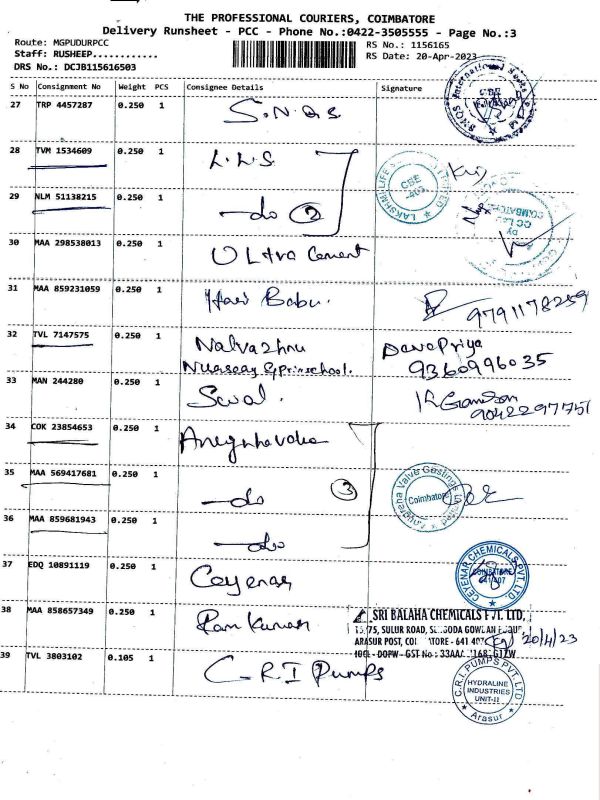 THE PROFESSIONAL COURIERS, COIMBATORE
Delivery Runsheet - PCC - Phone No.:0422-3505555 - Page No.:3
Route: MGPUDURPCC
Staff: RUSHEEP............
DRS No.: DCJB115616503
RS No.: 1156165
RS Date: 20-Apr-2023
S No Consignment No Weight PCS Consignee Details Signature
27 TRP 4457287 0.250 1 S.N.Q.S
28 TVM 1534609 0.250 1 L.L.S
29 NLM 51138215 0.250 1 -do 2
30 MAA 298538013 0.250 1 Ultra Cement
31 MAA 859231059 0.250 1 Hari Babu. 9791178259
32 TVL 7147575 0.250 1 Nalvazhnu DevaPriya
Nursery & pri school. 9360996035
33 MAN 244280 0.250 1
9042297751
34 COK 23854653 0.250 1
35 MAA 569417681 0.250 1 -do 3
Coimbatore
36 MAA 859681943 0.250 1 -do
37 EDQ 10891119 0.250 1 Ceyenar
CEYENAR CHEMICALS PVT. LTD.
COIMBATORE
641 407
38 MAA 858657349 0.250 1 Ram Kumar
SRI BALAHA CHEMICALS PVT. LTD.
SULUR ROAD,
ARASUR POST,
20/4/23
39 TVL 3803102 0.105 1 C.R.I Pumps
C.R.I. PUMPS PVT. LTD
HYDRALINE
INDUSTRIES
UNIT-II
Arasur